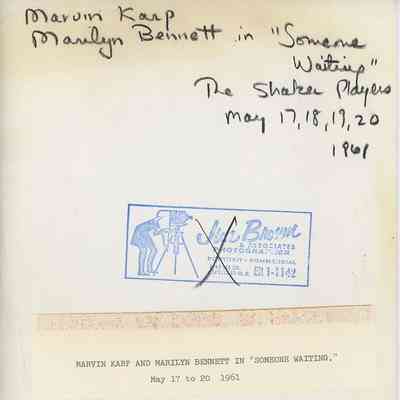 Marvin Karp
Marilyn Bennett in "Someone
Waiting"
The Shaker Players
May 17, 18, 19, 20
1961
Jim Brown
& ASSOCIATES
PHOTOGRAPHER
PORTRAIT - COMMERCIAL
ER 1-1142
MARVIN KARP AND MARILYN BENNETT IN "SOMEONE WAITING,"
May 17 to 20 1961